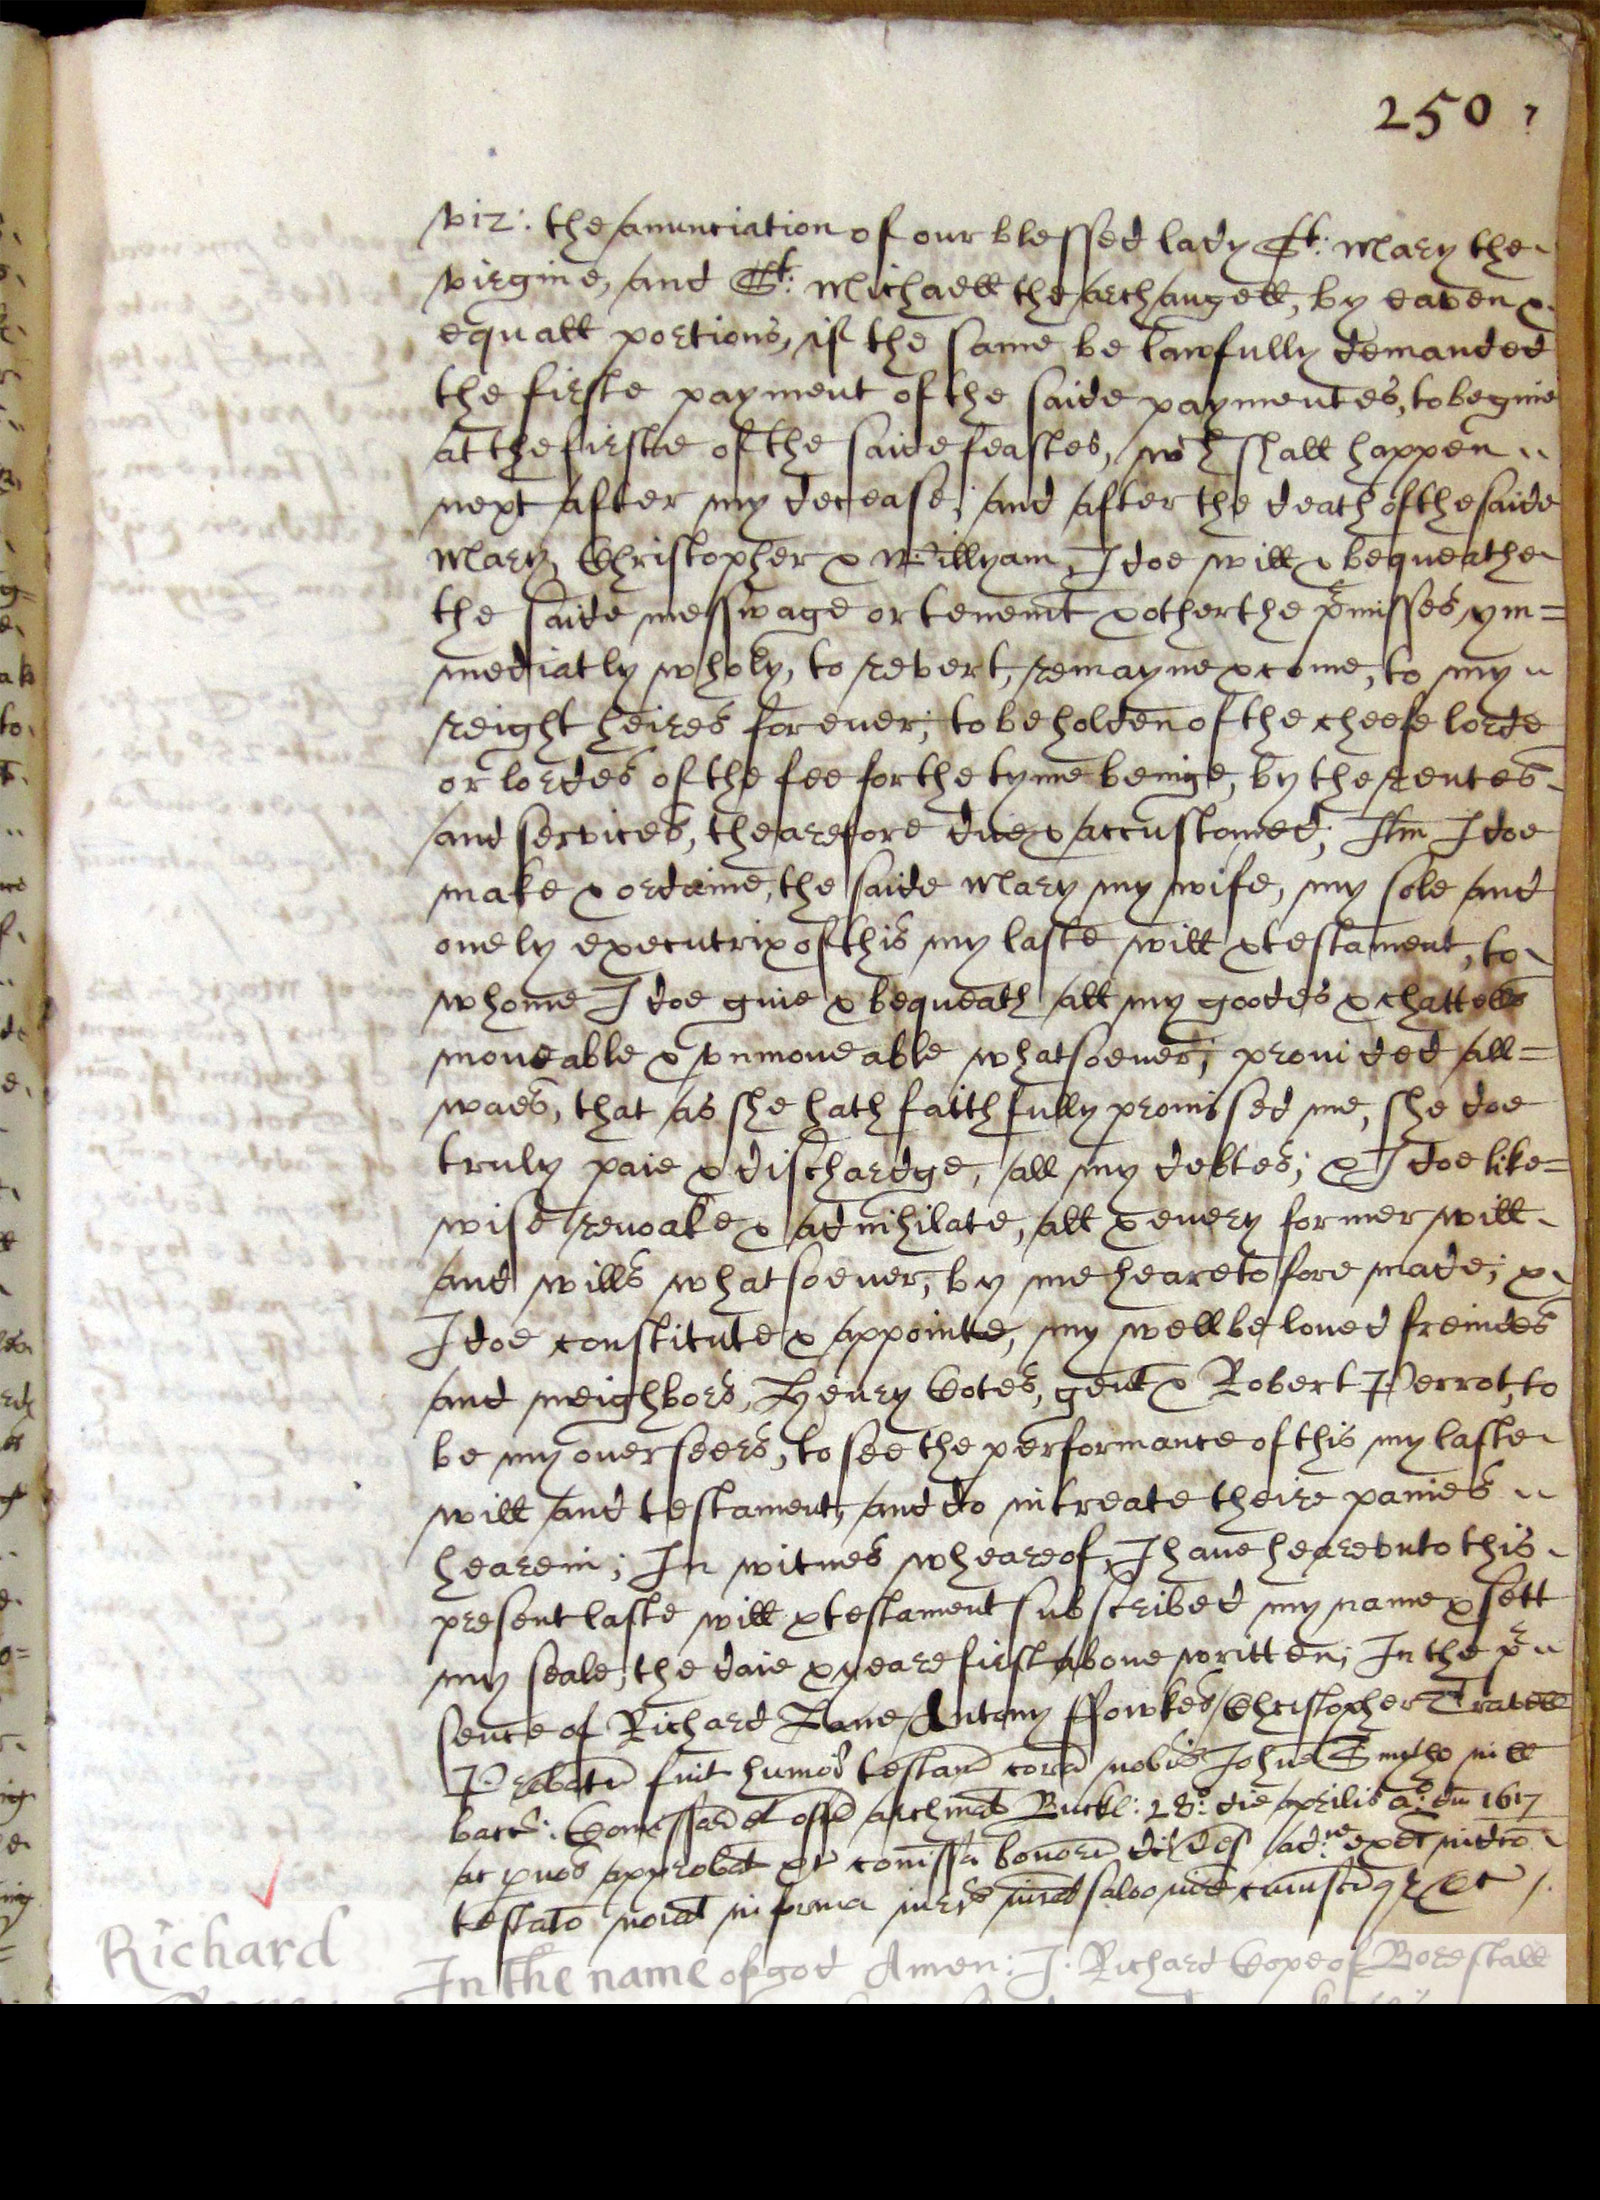 250
viz: the anunciation of our blessed lady St: Mary the
virgine, and St: Michaell the archangell, by eaven &
equall portions, if the same be lawfully demanded
the firste payment of the saide paymentes, to begine
at the firste of the saide feastes, wch shall happen
next after my decease; and after the death of the saide
Mary, Christopher & Willyam, I doe will & bequeathe
the saide messwage or tenemt & other the pr̃misses ym=
mediatly wholy, to revert, remayne & come, to my
reight heires for ever; to be holden of the cheefe lorde
or lordes of the fee for the tyme beinge, by the rentes
and services, thearefore due & accustomed; Itm I doe
make & ordaine, the saide Mary my wife, my sole and
onely executrix of this my laste will & testament, to
whome I doe give & bequeath all my goodes & chattells
moveable & vnmoveable whatsoever; provided all=
waes, that as she hath faithfully promissed me, she doe
truly paie & dischardge, all my debtes; & I doe like=
wise revoake & adnihilate, all & every former will
and wills whatsoever, by me hearetofore made; &
I doe constitute & appointe, my wellbeloved freindes
and neighbors, Henry Cotes, gent & Robert Perrot, to
be my overseers, to see the performance of this my laste
will and testament, and do intreate theire panies
hearein; In witnes wheareof, I have hearevnto this
present laste will & testament subscribed my name & sett
my seale, the daie & yeare first above written; In the pr̃
sence of Richard Lane Antony Ffowkes Christopher Travell
Probatũ fuit humoi testam̃ corã nobis Johne Smythe in ll
bacc: Comissar̃ et offĩ archinat Buck: 28: die aprilis ao: dni 1617
ac p nos approbat &c comissa bonorũ dcĩ def ad: exec in dco
testato noĩat in forma iuris iurat salvo iure cuiuscũqz &c
Richard
In the name of god Amen: I Richard Cope of Borestall